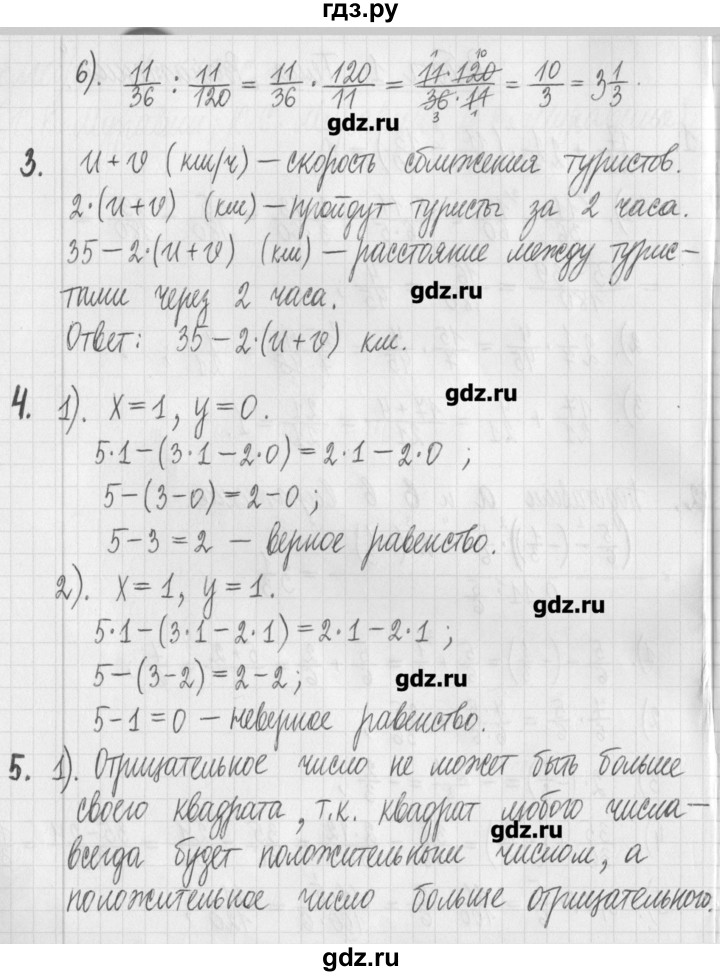 гдз.ру
6). 11/36 : 11/120 = 11/36 · 120/11 = 11·120/36·11 = 10/3 = 3 1/3.
1 10
3 1
gdz.ru
3. u+v (км/ч) – скорость сближения туристов.
2·(u+v) (км) – пройдут туристы за 2 часа.
35–2·(u+v) (км) – расстояние между турис–
тами через 2 часа.
gdz.ru
Ответ: 35–2·(u+v) км.
gdz.ru
4. 1). x=1, y=0.
5·1–(3·1–2·0)=2·1–2·0 ;
5–(3–0)=2–0;
5–3=2 – верное равенство.
2). x=1, y=1.
gdz.ru
5·1–(3·1–2·1)=2·1–2·1 ;
5–(3–2)=2–2;
gdz.ru
5–1=0 – неверное равенство.
5. 1). Отрицательное число не может быть больше
своего квадрата, т.к. квадрат любого числа–
gdz.ru
всегда будет положительным числом, а
положительное число больше отрицательного.
gdz.ru